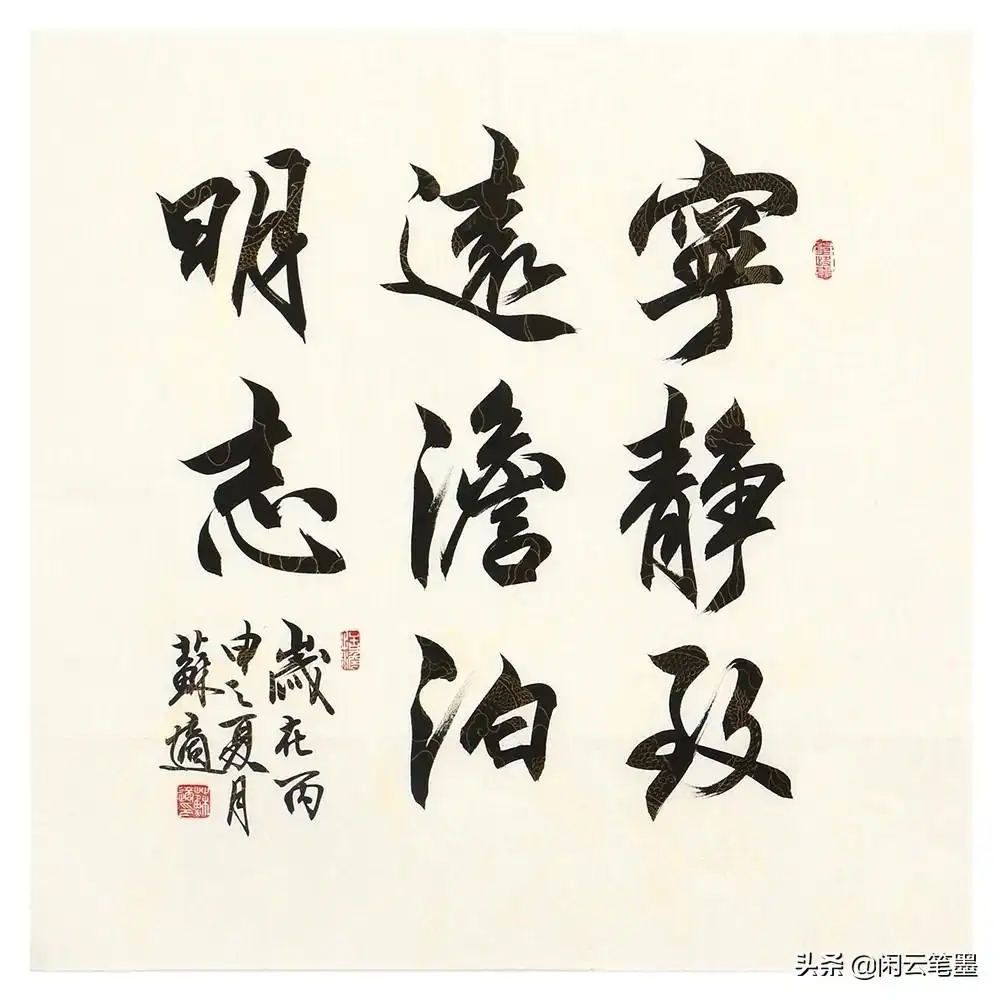 寧靜致
遠澹泊
明志
歲在丙
申之夏月
蘇適
头条 @闲云笔墨